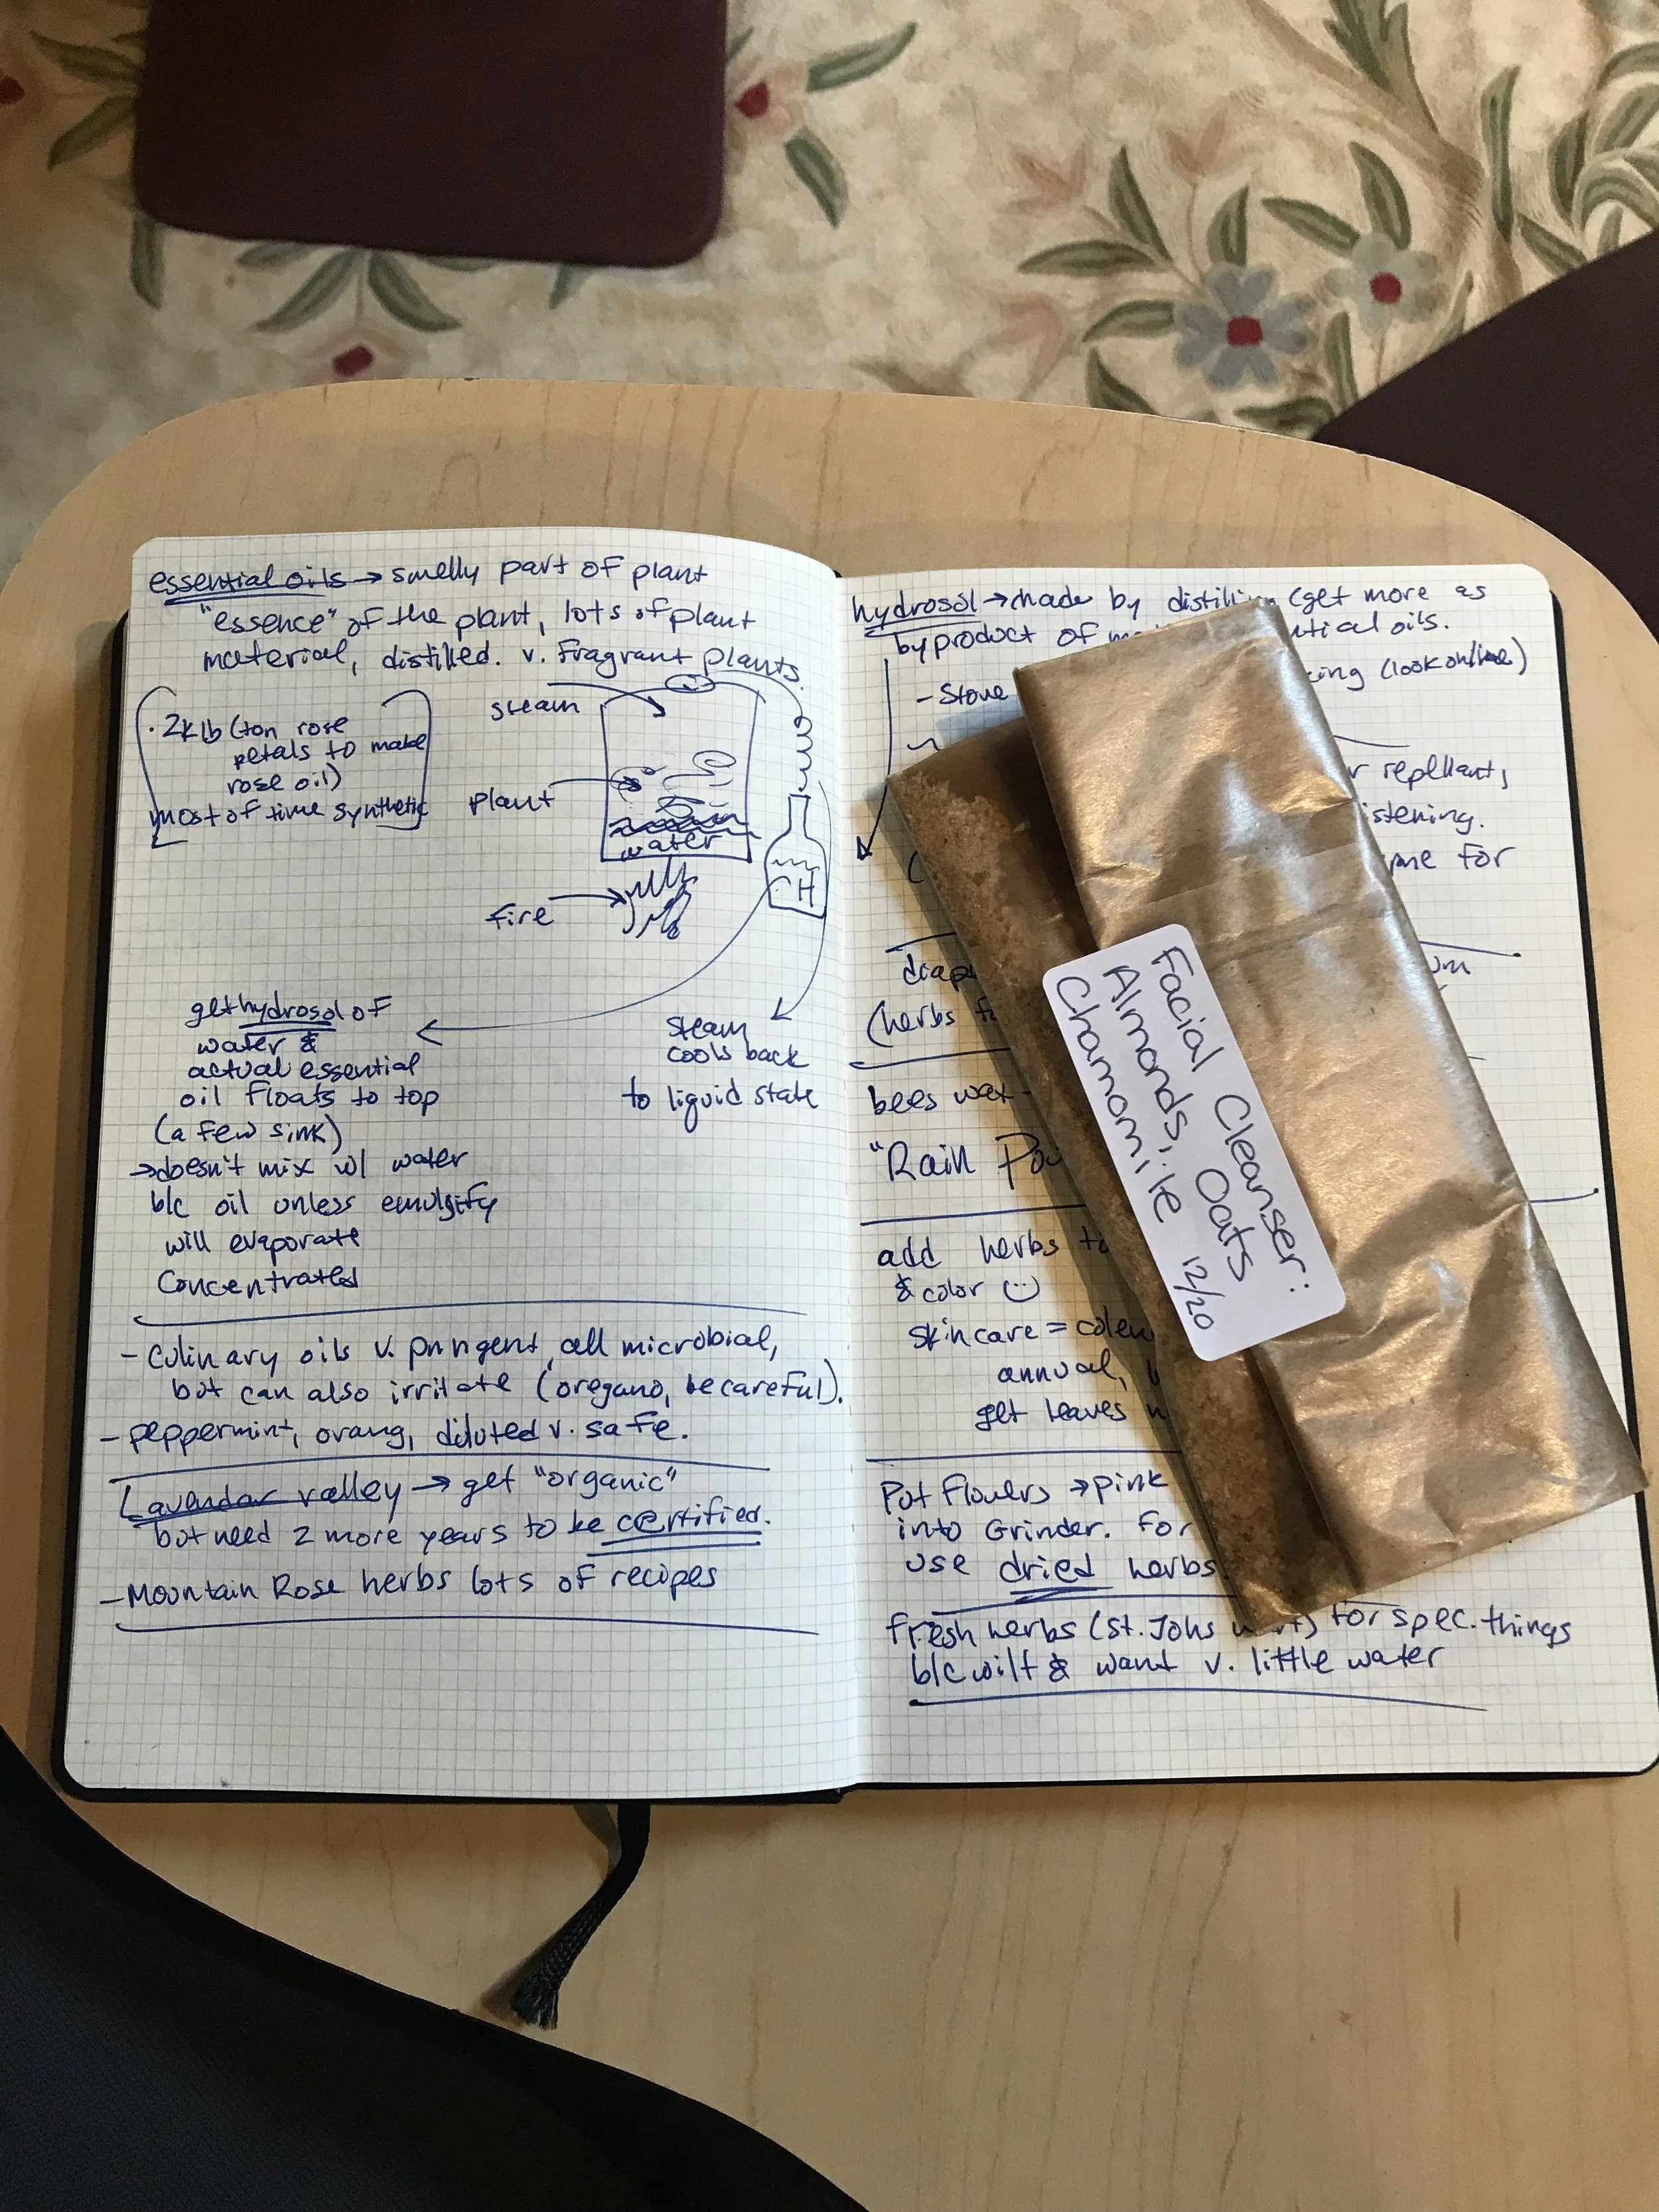 essential oils → smelly part of plant
"essence" of the plant, lots of plant
material, distilled. v. fragrant plants.
· 2k lb (ton rose
petals to make
rose oil)
most of time synthetic
steam
plant
water
fire
get hydrosol of
water &
actual essential
oil floats to top
(a few sink)
→ doesn't mix w/ water
b/c oil unless emulsify
will evaporate
concentrated
steam
cools back
to liquid state
- Culinary oils v. pungent, all microbial,
but can also irritate (oregano, be careful).
- peppermint, orang, diluted v. safe.
Lavendar valley → get "organic"
but need 2 more years to be certified.
- Mountain Rose herbs lots of recipes
hydrosol → made by distilling (get more as
byproduct of oils.
- Stove (look online)
repellant,
for
(herbs
bees wax -
"Rain
add herbs
& color ☺
skin care =
annual,
get leaves
Put flowers → pink
into Grinder. For
use dried herbs.
fresh herbs (St. Johs for spec. things
b/c wilt & want v. little water
Facial Cleanser:
Almonds, Oats
Chamomile 12/20